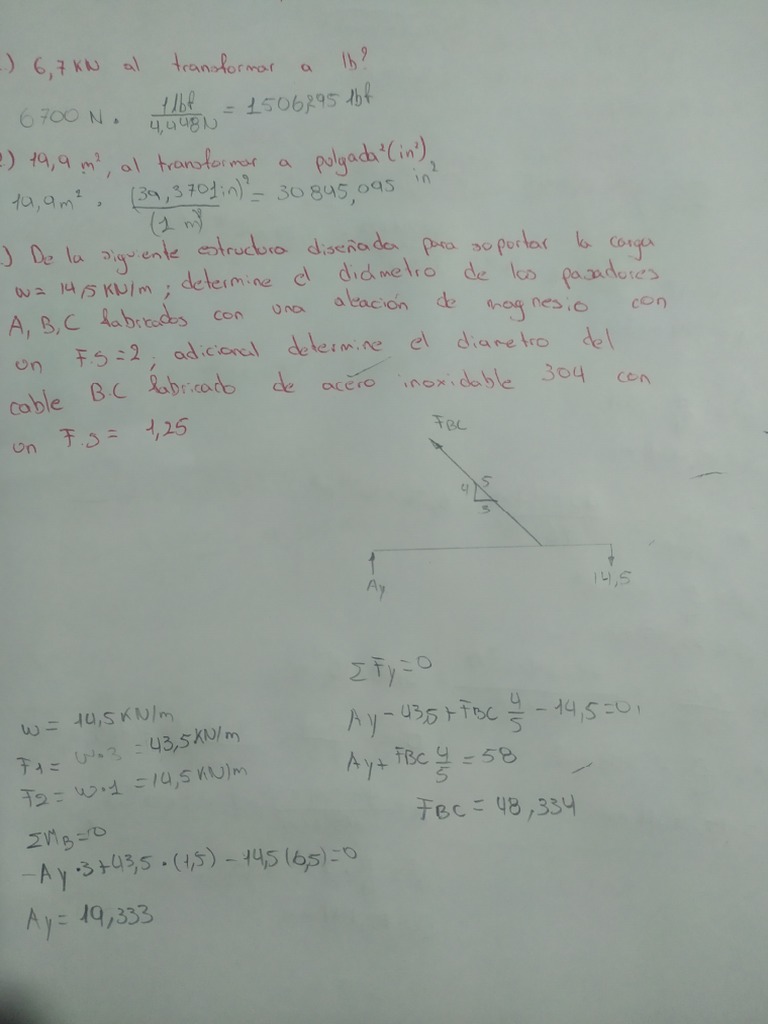 .) 6,7 KN al transformar a lb?
6700 N . 1 lbf / 4,448N = 1506,295 lbf
2.) 19,9 m², al transformar a pulgada² (in²)
19,9 m² . (39,3701 in)² / (1 m)² = 30845,095 in²
.) De la siguiente estructura diseñada para soportar la carga
w= 14,5 KN/m ; determine el diámetro de los pasadores
A, B, C fabricados con una aleación de magnesio con
un F.S=2 ; adicional determine el diametro del
cable B.C fabricado de acero inoxidable 304 con
un F.S= 1,25
FBC
4 5
3
Ay
14,5
ΣFy=0
w= 14,5 KN/m
Ay - 43,5 + FBC 4/5 - 14,5 = 0
F1= w.3 = 43,5 KN/m
Ay + FBC 4/5 = 58
F2= w.1 = 14,5 KN/m
FBC = 48,334
ΣMB=0
-Ay.3+43,5.(1,5) - 14,5(0,5)=0
Ay= 19,333